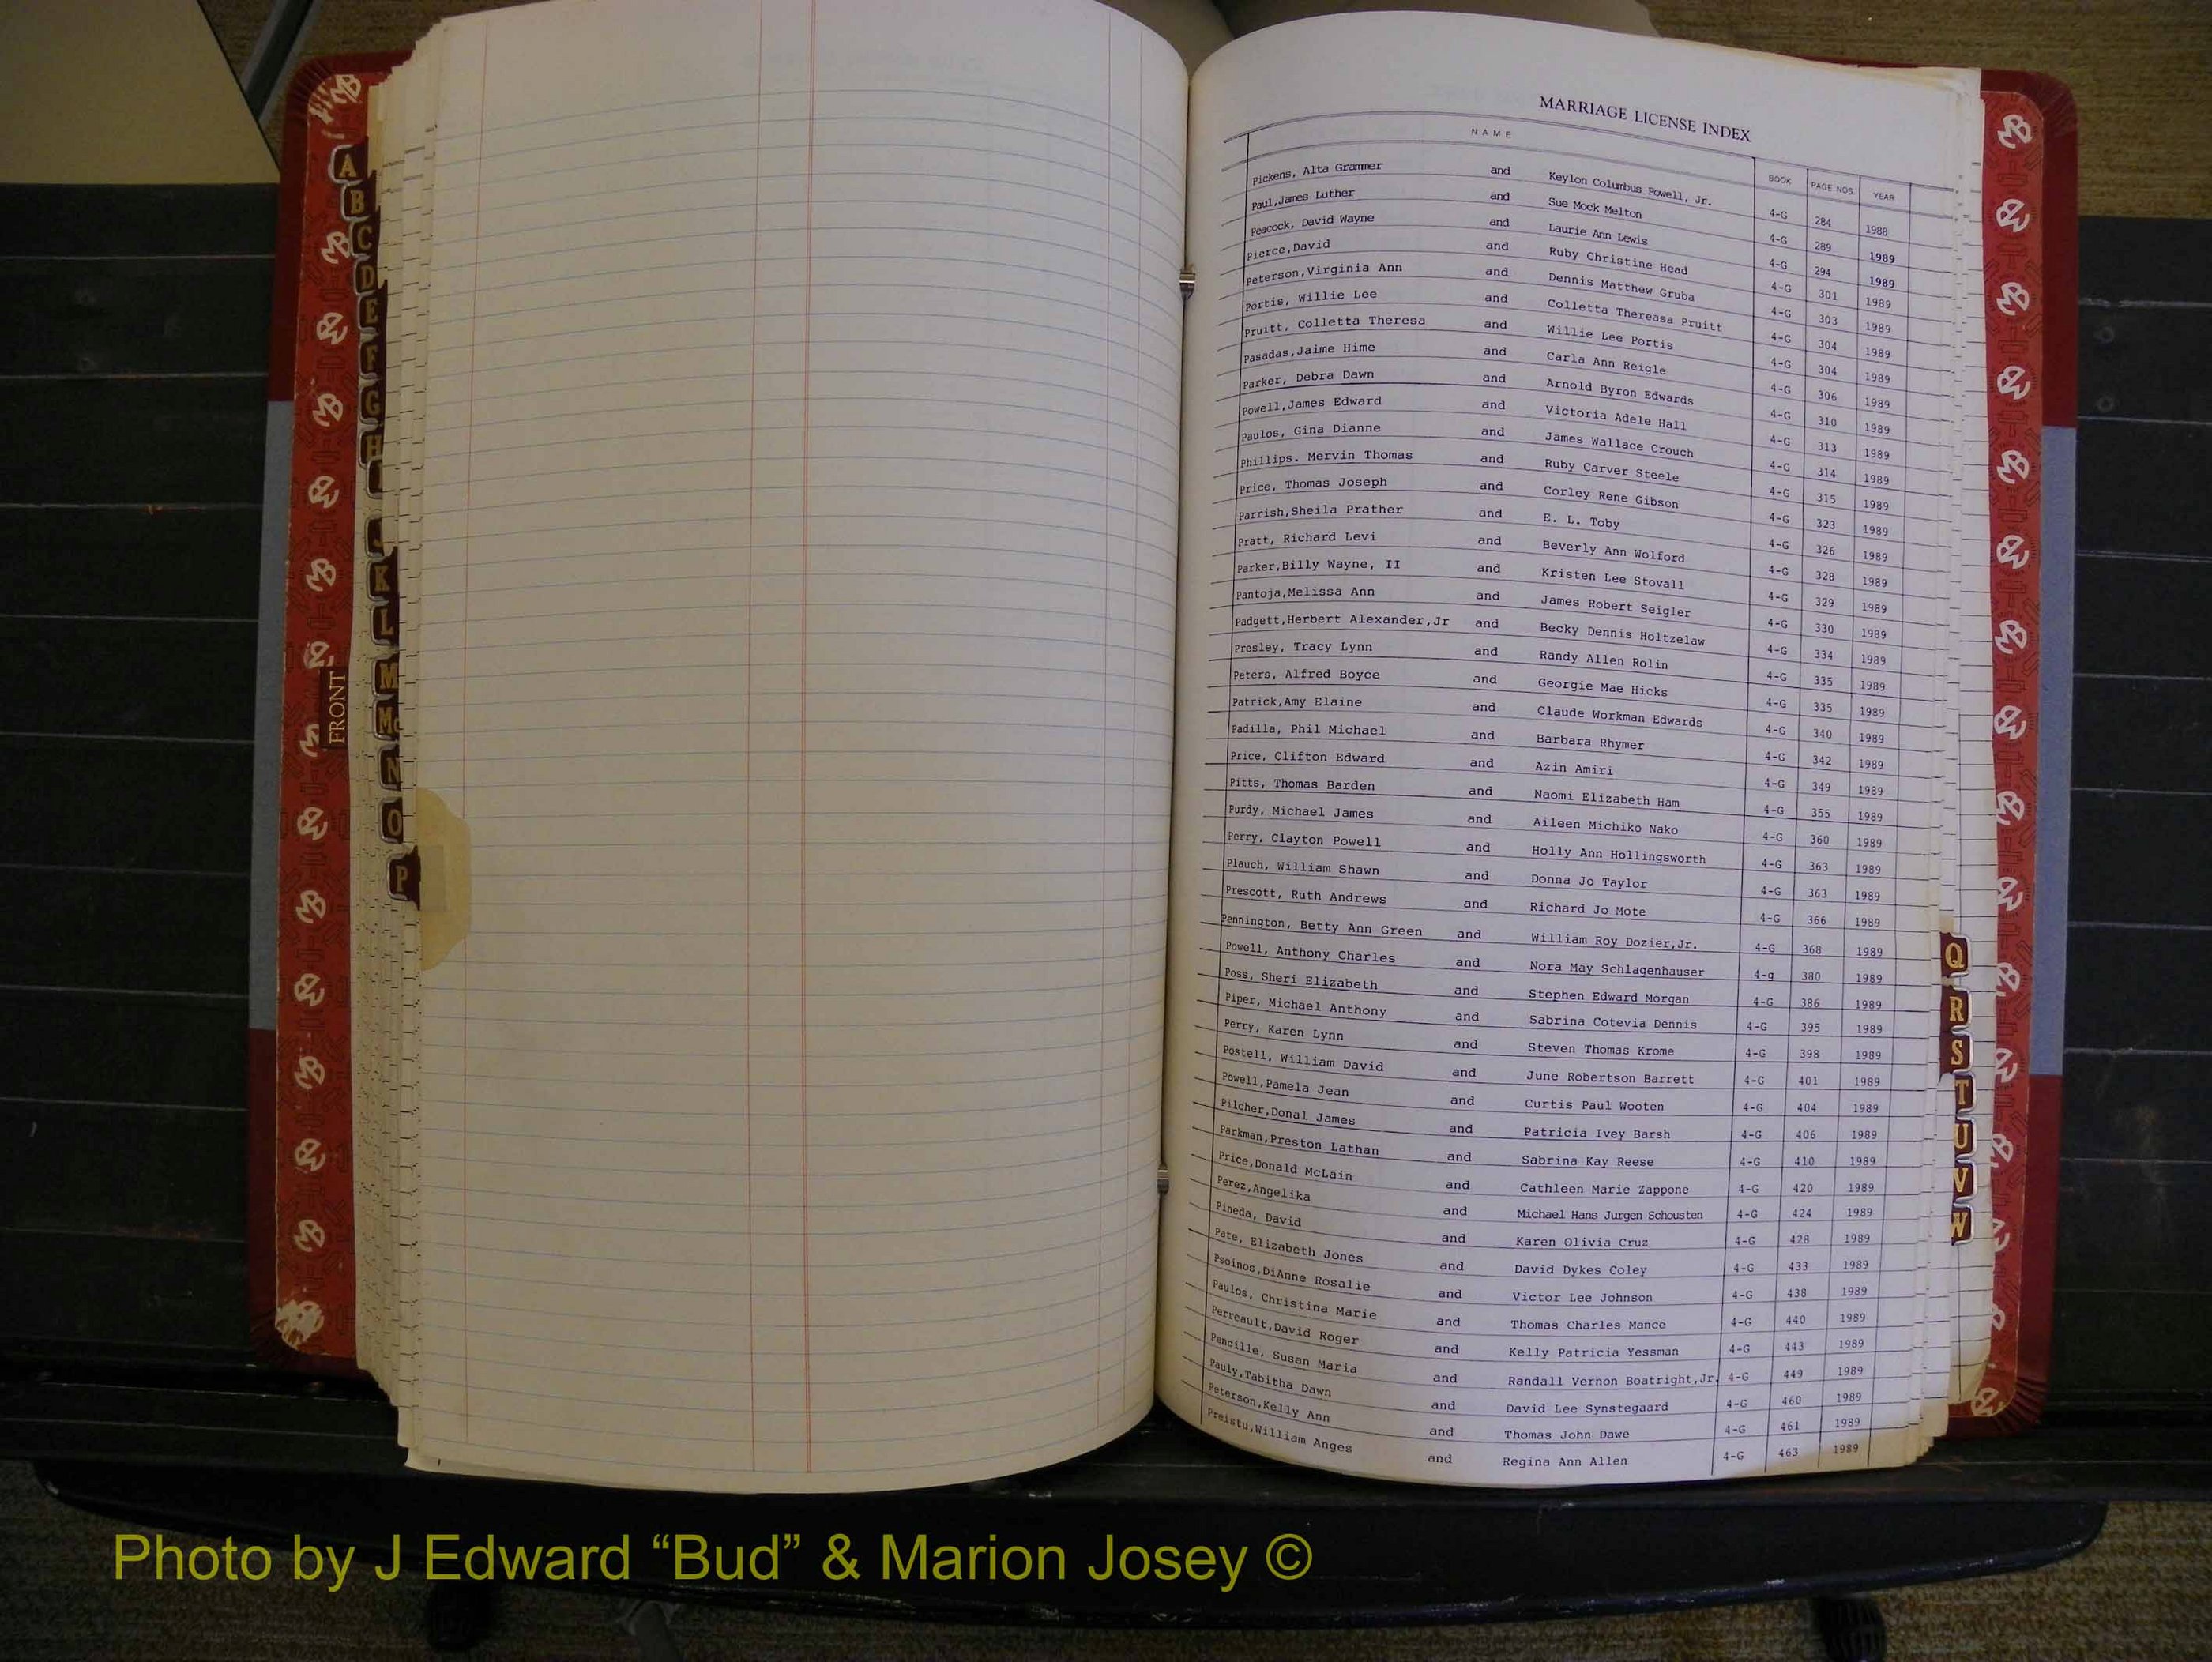 MARRIAGE LICENSE INDEX
NAME BOOK PAGE NOS. YEAR
Pickens, Alta Grammer and Keylon Columbus Powell, Jr. 4-G 284 1988
Paul,James Luther and Sue Mock Melton 4-G 289 1989
Peacock, David Wayne and Laurie Ann Lewis 4-G 294 1989
Pierce,David and Ruby Christine Head 4-G 301 1989
Peterson,Virginia Ann and Dennis Matthew Gruba 4-G 303 1989
Portis, Willie Lee and Colletta Thereasa Pruitt 4-G 304 1989
Pruitt, Colletta Theresa and Willie Lee Portis 4-G 304 1989
Pasadas,Jaime Hime and Carla Ann Reigle 4-G 306 1989
Parker, Debra Dawn and Arnold Byron Edwards 4-G 310 1989
Powell,James Edward and Victoria Adele Hall 4-G 313 1989
Paulos, Gina Dianne and James Wallace Crouch 4-G 314 1989
Phillips. Mervin Thomas and Ruby Carver Steele 4-G 315 1989
Price, Thomas Joseph and Corley Rene Gibson 4-G 323 1989
Parrish,Sheila Prather and E. L. Toby 4-G 326 1989
Pratt, Richard Levi and Beverly Ann Wolford 4-G 328 1989
Parker,Billy Wayne, II and Kristen Lee Stovall 4-G 329 1989
Pantoja,Melissa Ann and James Robert Seigler 4-G 330 1989
Padgett,Herbert Alexander,Jr and Becky Dennis Holtzelaw 4-G 334 1989
Presley, Tracy Lynn and Randy Allen Rolin 4-G 335 1989
Peters, Alfred Boyce and Georgie Mae Hicks 4-G 335 1989
Patrick,Amy Elaine and Claude Workman Edwards 4-G 340 1989
Padilla, Phil Michael and Barbara Rhymer 4-G 342 1989
Price, Clifton Edward and Azin Amiri 4-G 349 1989
Pitts, Thomas Barden and Naomi Elizabeth Ham 4-G 355 1989
Purdy, Michael James and Aileen Michiko Nako 4-G 360 1989
Perry, Clayton Powell and Holly Ann Hollingsworth 4-G 363 1989
Plauch, William Shawn and Donna Jo Taylor 4-G 363 1989
Prescott, Ruth Andrews and Richard Jo Mote 4-G 366 1989
Pennington, Betty Ann Green and William Roy Dozier,Jr. 4-G 368 1989
Powell, Anthony Charles and Nora May Schlagenhauser 4-g 380 1989
Poss, Sheri Elizabeth and Stephen Edward Morgan 4-G 386 1989
Piper, Michael Anthony and Sabrina Cotevia Dennis 4-G 395 1989
Perry, Karen Lynn and Steven Thomas Krome 4-G 398 1989
Postell, William David and June Robertson Barrett 4-G 401 1989
Powell,Pamela Jean and Curtis Paul Wooten 4-G 404 1989
Pilcher,Donal James and Patricia Ivey Barsh 4-G 406 1989
Parkman,Preston Lathan and Sabrina Kay Reese 4-G 410 1989
Price,Donald McLain and Cathleen Marie Zappone 4-G 420 1989
Perez,Angelika and Michael Hans Jurgen Schousten 4-G 424 1989
Pineda, David and Karen Olivia Cruz 4-G 428 1989
Pate, Elizabeth Jones and David Dykes Coley 4-G 433 1989
Psoinos,DiAnne Rosalie and Victor Lee Johnson 4-G 438 1989
Paulos, Christina Marie and Thomas Charles Mance 4-G 440 1989
Perreault,David Roger and Kelly Patricia Yessman 4-G 443 1989
Pencille, Susan Maria and Randall Vernon Boatright,Jr. 4-G 449 1989
Pauly,Tabitha Dawn and David Lee Synstegaard 4-G 460 1989
Peterson,Kelly Ann and Thomas John Dawe 4-G 461 1989
Preistu,William Anges and Regina Ann Allen 4-G 463 1989
A
B
C
D
E
F
G
H
I
J
K
L
M
Mc
N
O
P
FRONT
Q
R
S
T
U
V
W
Photo by J Edward “Bud” & Marion Josey ©